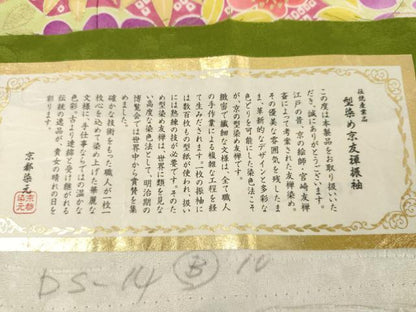 伝統産業品
型染め京友禅振袖
この度は本製品をお取り扱いいた
だき、誠にありがとうございます。
江戸の昔、京の絵師・宮崎友禅
斎によって考案された友禅染。
その優美な雰囲気を残したま
ま、革新的なデザインと多彩な
色どりを可能にした染色法こそ
が、京の型染め友禅です。
緻密で繊細な文様は、全て職人
の手作業による複雑な工程を経
て生みだされます。一枚の振袖に
は数百枚もの型紙が使われ、扱い
には熟練の技が必要です。そのた
め型染め友禅は、世界に類を見な
い高度な染色法として、明治期の
博覧会では世界中から賞賛を集
めました。
確かな技術をもった職人が一枚一
枚心を込めて染め上げた華麗な
文様に、手仕事ならではの温かな
色彩。古より連綿と受け継がれる
伝統の逸品が、貴女の晴れの日を
彩ります。
京都染元
京都
染元
DS-14 B 10